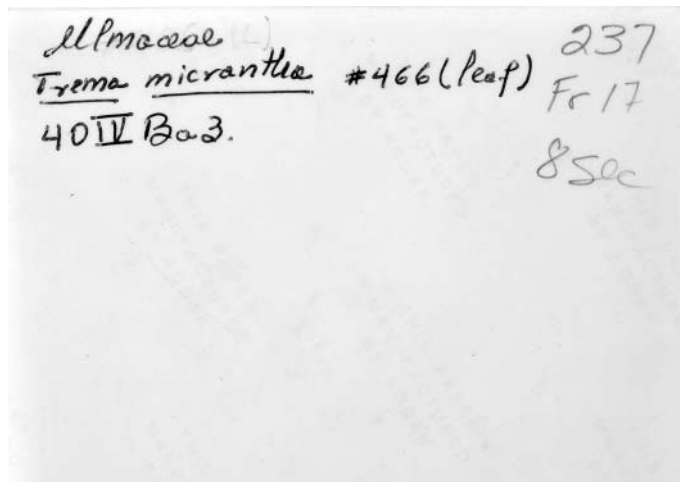 Ulmaceae
Trema micrantha #466 (leaf)
40 IV Ba3.
237
Fr 17
8 Sec